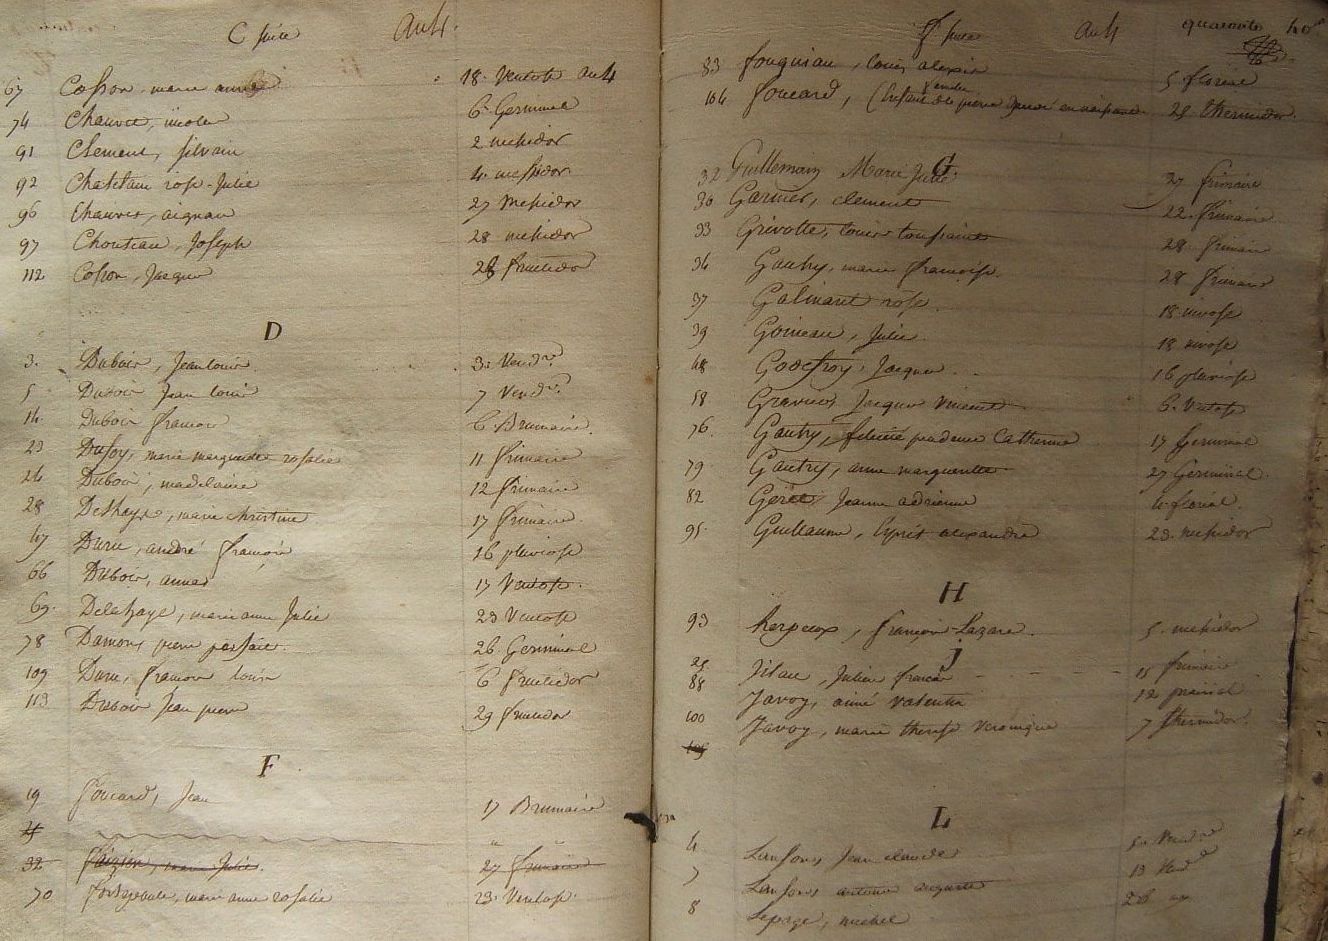 C suite an 4.
67 Cosson, marie 18. Ventose an 4
74 Chauvet, nicolas 6. Germinal
91 Clement, silvain 2 messidor
92 Chatelain rose-Julie 4. messidor
96 Chauvet, aignan 27 messidor
97 Chouteau, Joseph 28 messidor
112 Cosson, Jacques 28 fructidor
D
3. Dubois, Jean louis 3. Vend.re
5 Dubois Jean louis 7 Vend.re
14. Dubois francois 6 Brumaire.
23 Dufoy, marie marguerite rosalie 11 frimaire
24 Dubois, madelaine 12 frimaire
28 Deshays, marie christine 17 frimaire
47 Duru, andré françois 16 pluviose
66 Dubois, anne 17 Ventose.
69. Delahaye, marie anne Julie 23 Ventose
78 Damons pierre parfait. 26. Germinal
109 Duru, francois louis 6 fructidor
113 Dubois Jean pierre 29 fructidor
F
19 foucard, Jean 17 Brumaire
32 marie Julie. 27 frimaire
70 marie anne rosalie 23. Ventose.
f suite an 4 quarante 40
83 fouquiau, louis alexis 5 floreal
104 foucard, (Enfant de pierre en naissant 29 thermidor.
G
32 Guillemain Marie Julie 27 frimaire
30 Garnier, clement 22. frimaire
33 Grivotte, louis toussaint 28. frimaire
34 Gautry, marie françoise. 28 frimaire
37 Galinand rose. 18. nivose
39 Goineau, Julie. 18 nivose
48 Godefroy, Jacques 16 pluviose
58 Gravier Jacques Vincent 6. Ventose
76. Gautry, felicité prudence Catherine 17 Germinal
79 Gautry, anne marguerite 27 Germinal.
82 Jeanne adrienne 4. floréal.
95. Guillaume, Cyprès alexandre 23. messidor
H
93 herpeux, françois Lazare. 5. messidor
j
25 Julien francois 15 frimaire
88 Javoy, aimé Valentin 12 prairial
100 Javoy, marie therese Veronique 7 thermidor.
105
L
4 Lansons Jean claude 5. Vend.re
7 Lansons antoine auguste 13 Vend.re
8 Lepage, michel 26